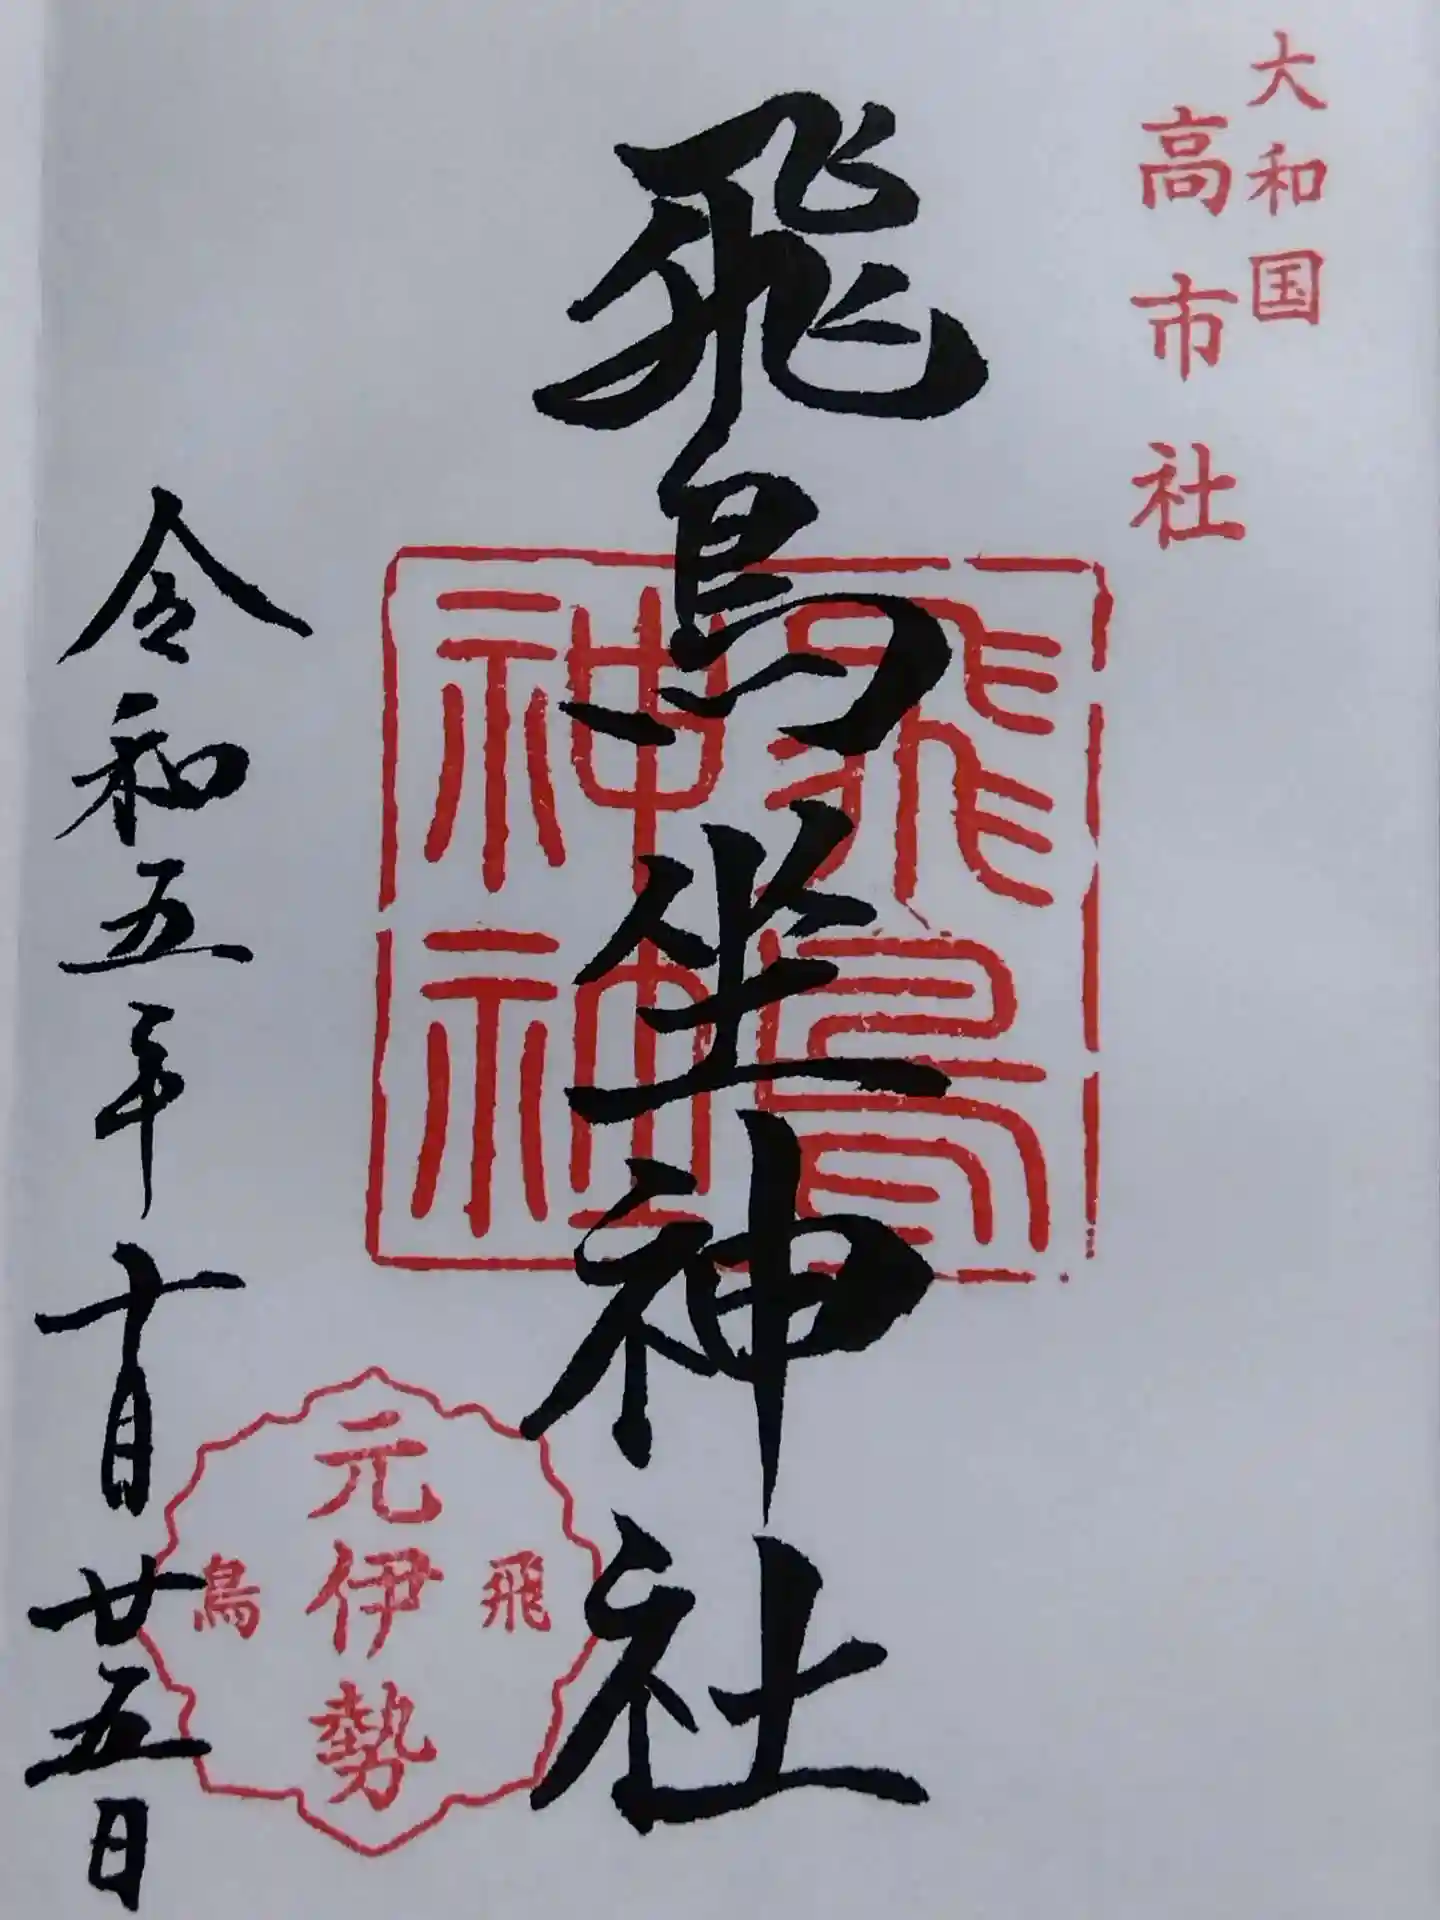 大和国
高市社
飛鳥坐神社
飛鳥
神社
飛鳥
元伊勢
令和五年十月廿五日